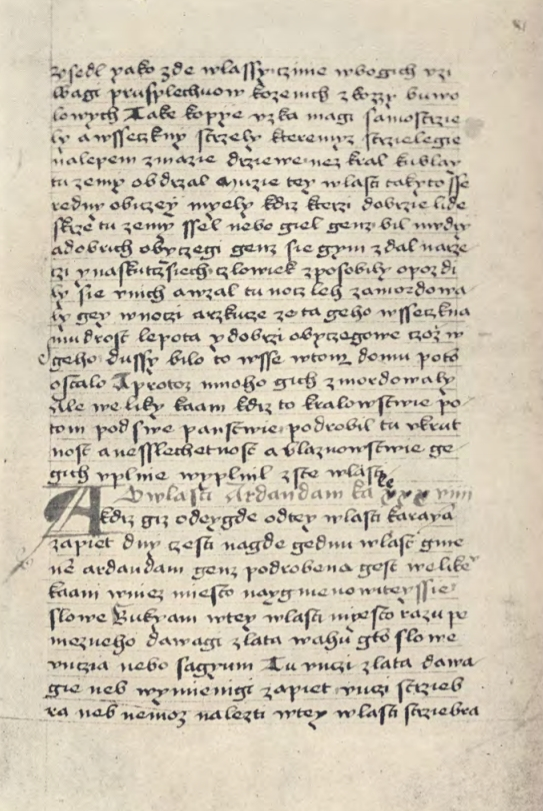 zysedl yako zde wlassy czinie wbogich vzi
wagi prusplechuow kozenich z kozzy buwo
lowych Take koppie vzka magi samostrzie
ly a wsseczkny strzely kteremyz strzielegie
nalepem zmazie drziewe nez kral kublay
tu zemy obdrzal Muzie tey wlasti takyto sse
redny obiczey myely kdiz kterzi dobrzie lide
skrze tu zemy ssel nebo giel genz bil mudry
a dobrich obyczegi genz sie gym zdal narze
czi ynaskutcziech czlowiek zposobily opozdi
ly sie vnich a wzal tu nocz leh zamordowa
ly gey wnoczi arzkucze ze ta geho wsseczkna
mudrost lepota y dobrzi obyczegowe czoz w
geho dussy bilo to wsse wtom domu poto
ostalo A protoz mnoho gich zmordowaly
Ale weliky kaam kdiz to kralowstwie po
tom pod swe panstwie podrobil tu vkrut
nost a nesslechetnost a blaznowstwie ge
gich vplnie wyplnil z ste wlasti
O wlasti Ardandam ka xxxviii
A kdiz giz odeygde od tey wlasti karaya
zapiet dny czesti nagde gednu wlast gme
ne ardandam genz podrobena gest welike
kaam wniez miesto naygmenowiteyssie
slowe Bukyam wtey wlasti miesto razu pe
niezneho dawagi zlata wahu gto slowe
vnczia nebo sagyum Tu vnczi zlata dawa
gie neb wymienigi zapiet vnczi strzieb
ra neb nemoz nalezti wtey wlasti strziebra